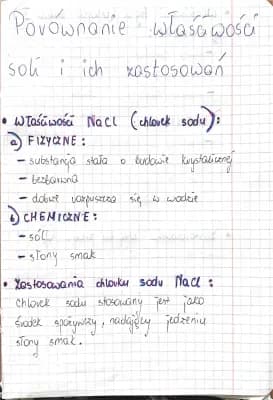 Porównanie właściwości
soli i ich zastosowań
• Właściwości NaCl (chlorek sodu):
a) FIZYCZNE:
– substancja stała o budowie krystalicznej
– bezbarwna
– dobrze rozpuszcza się w wodzie
b) CHEMICZNE:
– sól
– słony smak
• Zastosowania chlorku sodu NaCl:
Chlorek sodu stosowany jest jako
środek spożywczy, nadający jedzeniu
słony smak.